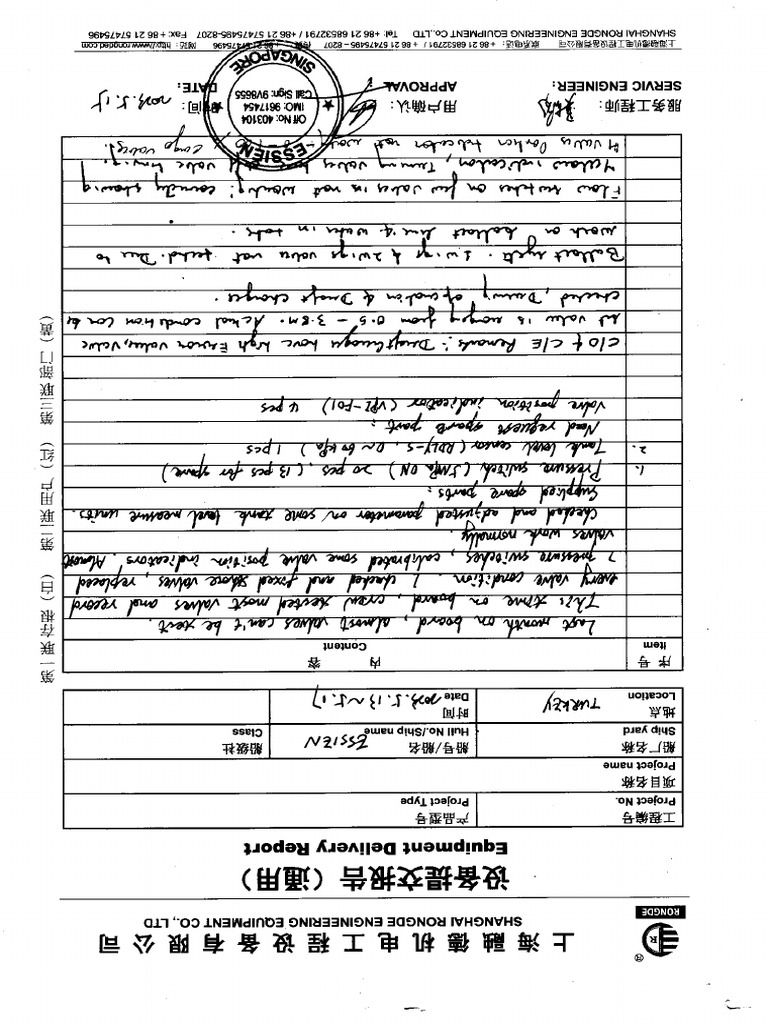 上海融德机电工程设备有限公司
SHANGHAI RONGDE ENGINEERING EQUIPMENT CO., LTD
R
RONGDE
设备提交报告（通用）
Equipment Delivery Report
工程编号 Project No. 产品型号 Project Type
项目名称 Project name
船厂名称 Ship yard 船号/船名 Hull No./Ship name ESSIEN 船级社 Class
地点 Location TURKEY 时间 Date 2023.5.13~5.17
序号 Item 内容 Content
Last month on board, almost valves can't be test.
This time on board, crew tested most valves and record
every valve condition. I checked and fixed some valves, replaced
7 pressure switches, calibrated some valve position indicators. Almost
valves work normally
Checked and adjusted parameter on some tank level measure units.
Supplied spare parts:
1. Pressure switch (5MPa ON) 20 pcs, (13 pcs for spare)
2. Tank level sensor (RDLY-5, 0~60kPa) 1 pcs
Need request spare part:
Valve position indicator (VPI-F01) 4 pcs
C/O & C/E Remarks: Draft have high Error value, valve
but value is from 0.5 - 3.8m. Actual condition can be
checked, During operation & Draft changes.
Ballast system. 1 wings & 2 wings valve not tested. Due to
work on ballast line & water in tanks.
Flow switches on few valves in not working! correctly showing
Yellow indication, Turning valves
4 valves Position Indicator not work cargo valves)
服务工程师: SERVIC ENGINEER: 用户确认: APPROVAL 时间: DATE: 2023.5.17
ESSIEN
Off No: 403104
IMO: 9617454
Call Sign: 9V8655
SINGAPORE
上海融德机电工程设备有限公司 联系电话: +86 21 68532791 / +86 21 57475495 - 8207 传真: +86 21 57475496 网站: http://www.rongded.com
SHANGHAI RONGDE ENGINEERING EQUIPMENT CO., LTD Tel: +86 21 68532791 / +86 21 57475495-8207 Fax: +86 21 57475496
第一联存根（白） 第二联用户（红） 第三联部门（黄）